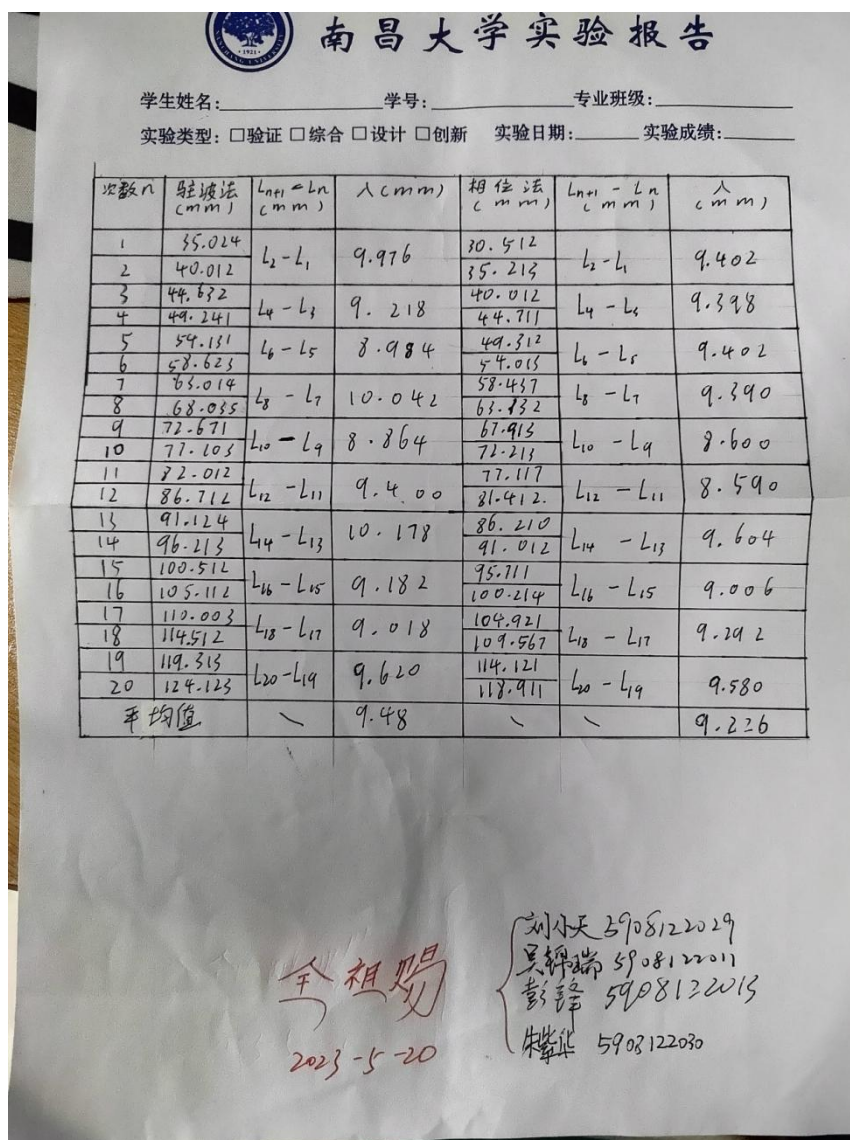 NANCHANG UNIVERSITY
· 1921 ·
南昌大学实验报告
学生姓名: 学号: 专业班级:
实验类型: □验证 □综合 □设计 □创新 实验日期: 实验成绩:
次数n 驻波法(mm) Ln+1 - Ln (mm) λ(mm) 相位法(mm) Ln+1 - Ln (mm) λ(mm)
1 35.024 L2-L1 9.976 30.512 L2-L1 9.402
2 40.012 35.213
3 44.632 L4-L3 9.218 40.012 L4-L3 9.398
4 49.241 44.711
5 54.131 L6-L5 8.984 49.312 L6-L5 9.402
6 58.623 54.013
7 63.014 L8-L7 10.042 58.437 L8-L7 9.390
8 68.035 63.132
9 72.671 L10-L9 8.864 67.913 L10-L9 8.600
10 77.103 72.213
11 82.012 L12-L11 9.400 77.117 L12-L11 8.590
12 86.712 81.412.
13 91.124 L14-L13 10.178 86.210 L14-L13 9.604
14 96.213 91.012
15 100.512 L16-L15 9.182 95.711 L16-L15 9.006
16 105.112 100.214
17 110.003 L18-L17 9.018 104.921 L18-L17 9.292
18 114.512 109.567
19 119.313 L20-L19 9.620 114.121 L20-L19 9.580
20 124.123 118.911
平均值 \ 9.48 \ \ 9.226
刘小天 5908122029
吴锦瑞 5908122011
全祖赐
彭锋 5908122013
2023-5-20
朱紫华 5908122030